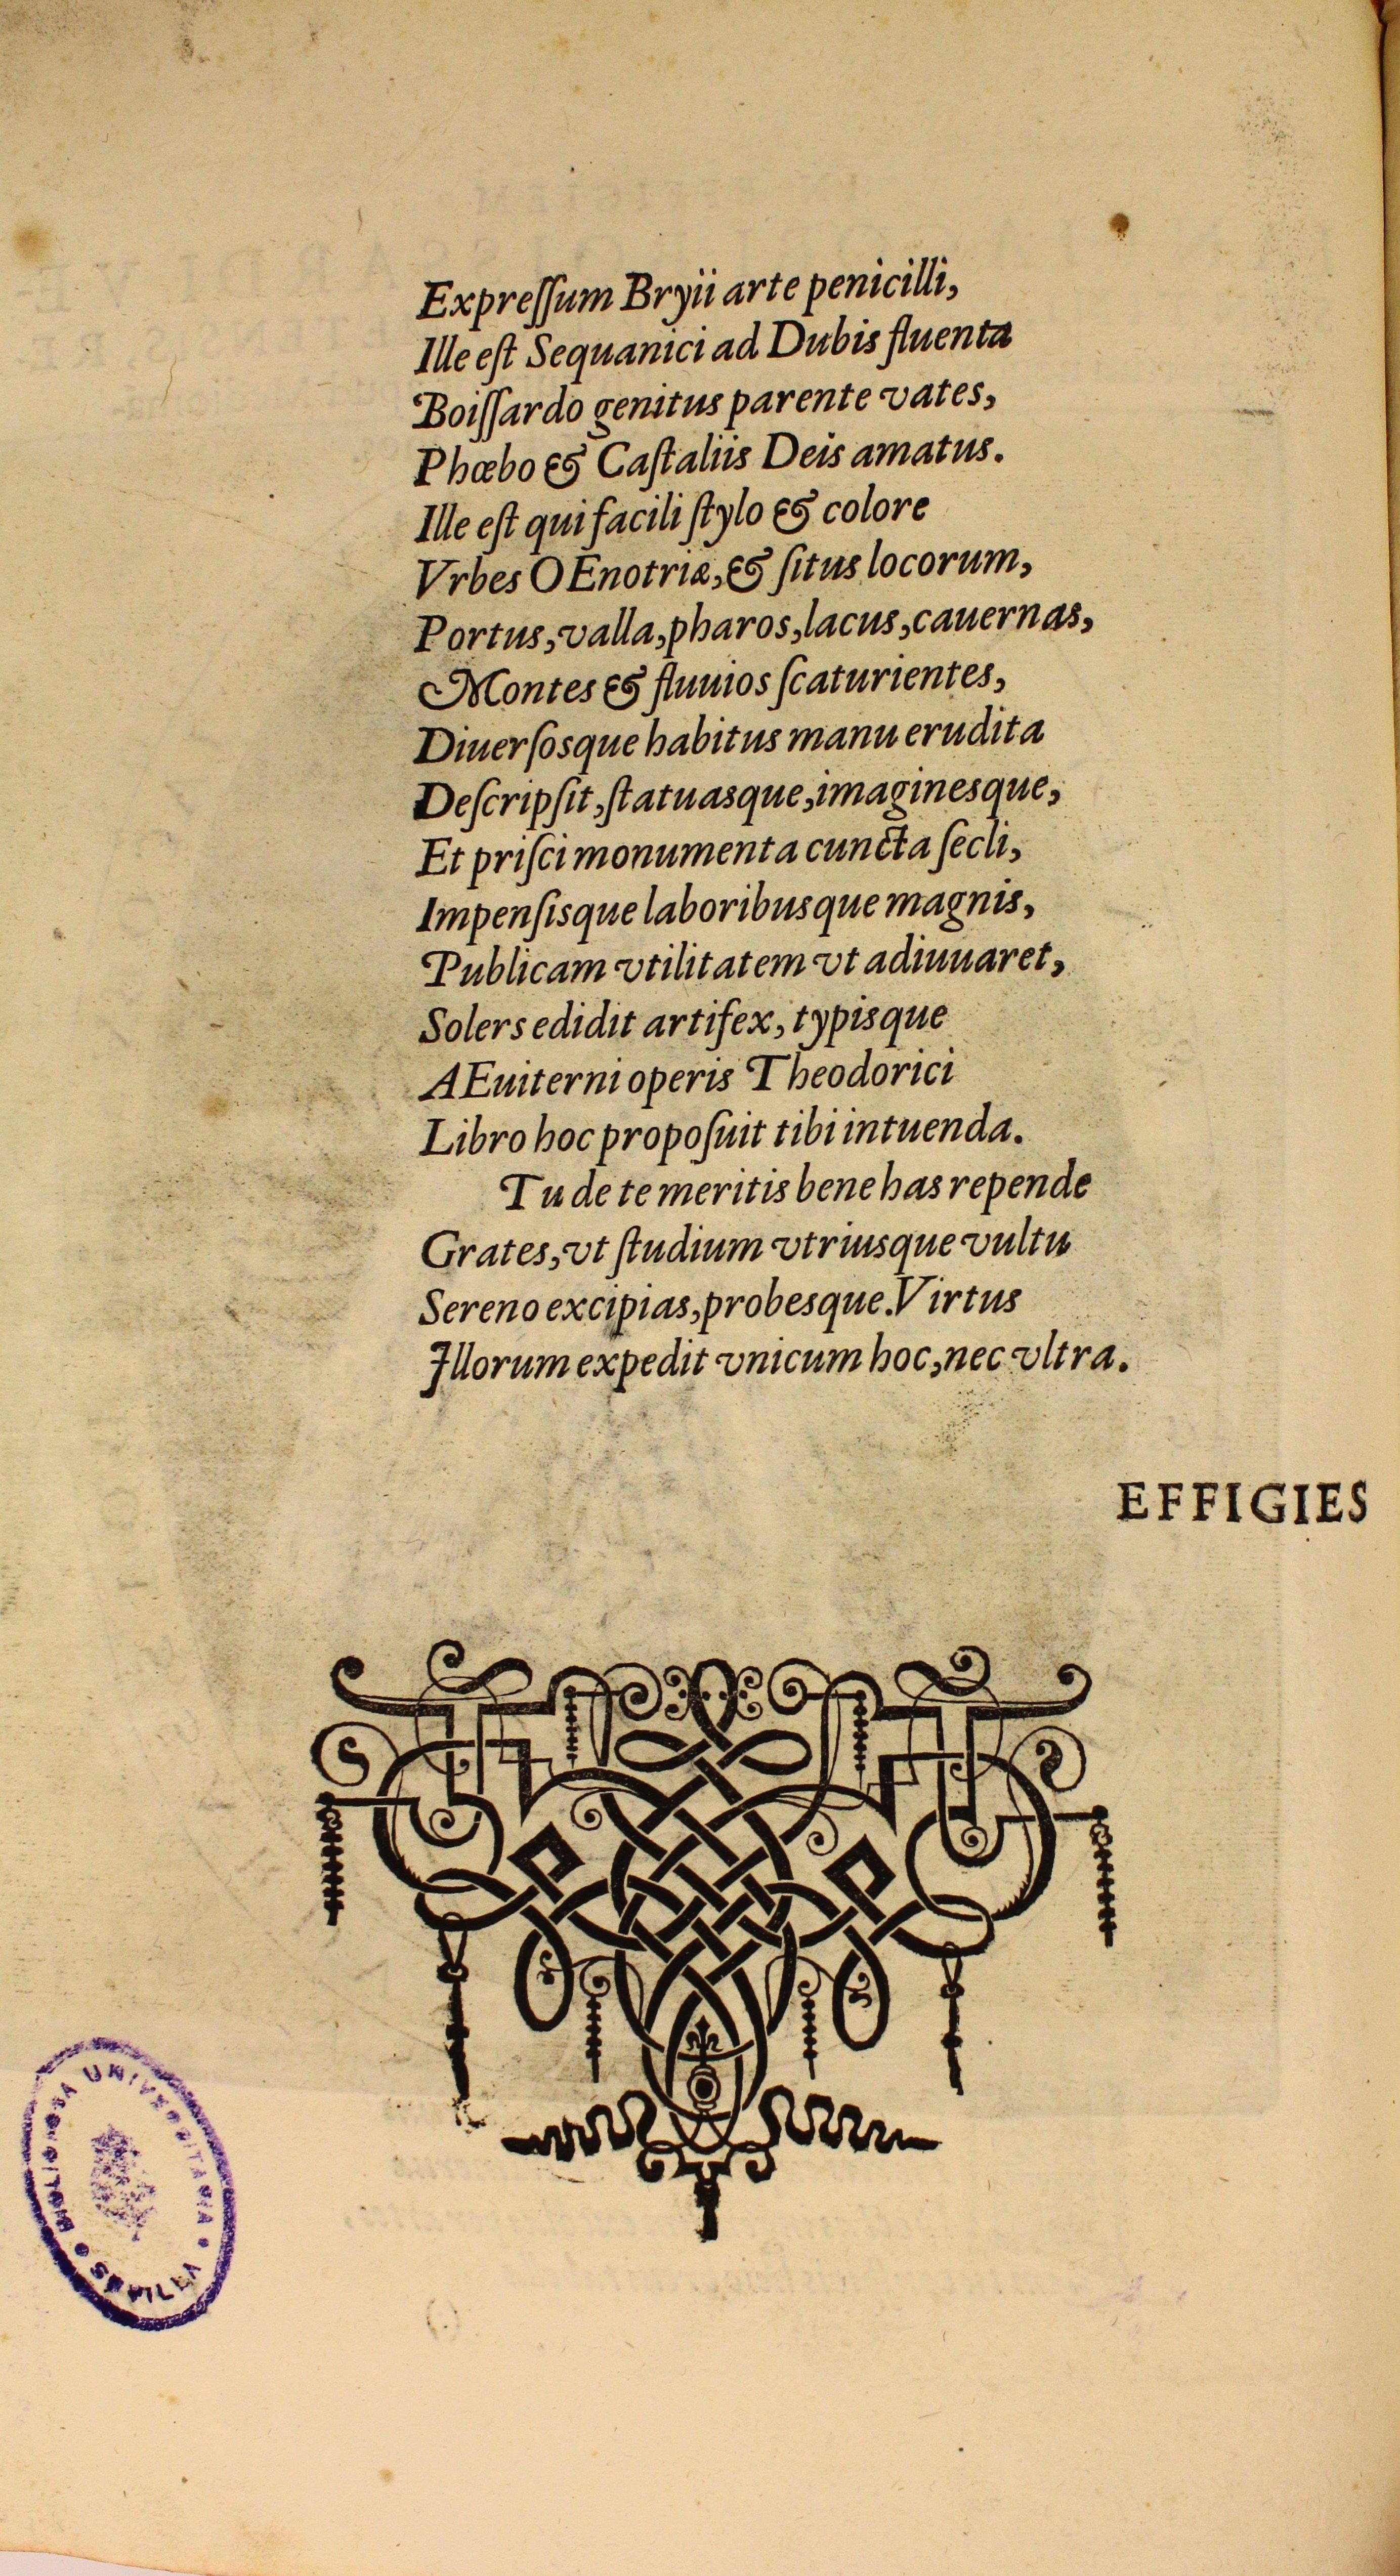 Expreſſum Bryii arte penicilli,
Ille eſt Sequanici ad Dubis fluenta
Boiſſardo genitus parente vates,
Phœbo & Caſtaliis Deis amatus.
Ille eſt qui facili ſtylo & colore
Vrbes OEnotriæ, & ſitus locorum,
Portus, valla, pharos, lacus, cauernas,
Montes & fluuios ſcaturientes,
Diuerſosque habitus manu erudita
Deſcripſit, ſtatuasque, imaginesque,
Et priſci monumenta cuncta ſecli,
Impenſisque laboribusque magnis,
Publicam vtilitatem vt adiuuaret,
Solers edidit artifex, typisque
AEuiterni operis Theodorici
Libro hoc propoſuit tibi intuenda.
Tu de te meritis bene has repende
Grates, vt ſtudium vtriusque vultu
Sereno excipias, probesque. Virtus
Illorum expedit vnicum hoc, nec vltra.
EFFIGIES
BIBLIOTECA UNIVERSITARIA
SEVILLA